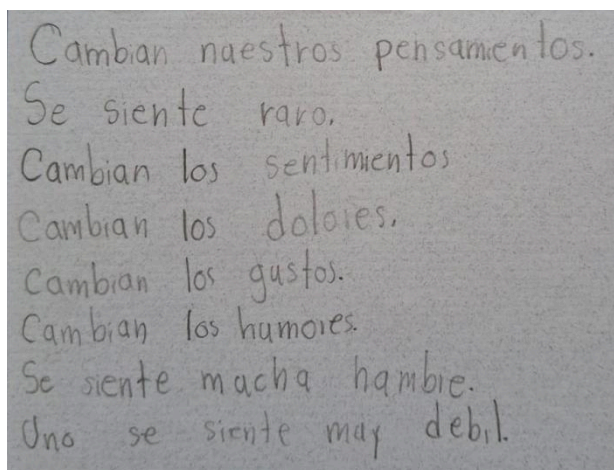 Cambian nuestros pensamientos.
Se siente raro.
Cambian los sentimientos
Cambian los dolores.
Cambian los gustos.
Cambian los humores.
Se siente mucha hambre.
Uno se siente muy debil.